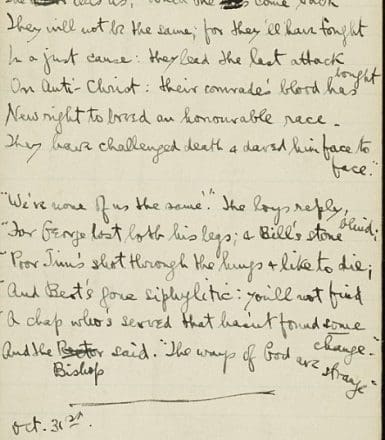 tells us, "When the come back
They will not be the same; for they'll have fought
In a just cause: they lead the last attack
On Anti-Christ: their comrade's blood has bought
New right to breed an honourable race.
They have challenged death & dared him face to face."
"We're none of us the same." The boys reply,
"For George lost both his legs; & Bill's stone blind;
"Poor Jim's shot through the lungs & like to die;
"And Bert's gone siphylitic: you'll not find
"A chap who's served that hasn't found some change."
And the Bishop said. "The ways of God are strange"
Oct. 31st.